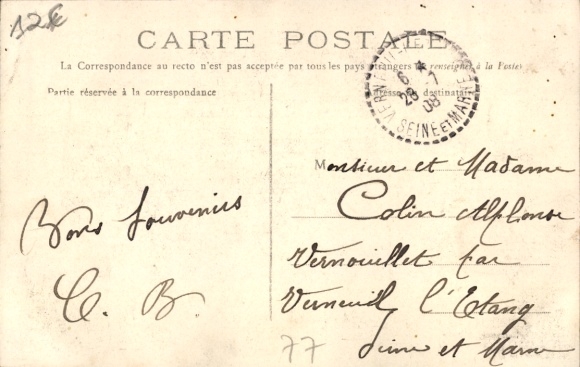 12€
CARTE POSTALE
La Correspondance au recto n'est pas acceptée par tous les pays étrangers (Se renseigner à la Poste)
Partie réservée à la correspondance
Adresse du destinataire
6 *
28 - 7
08
SEINE ET MARNE
Monsieur et Madame
Colin Alphonse
Vernouillet par
Verneuil l'Etang
Seine et Marne
Bons Souvenirs
C. B.
77